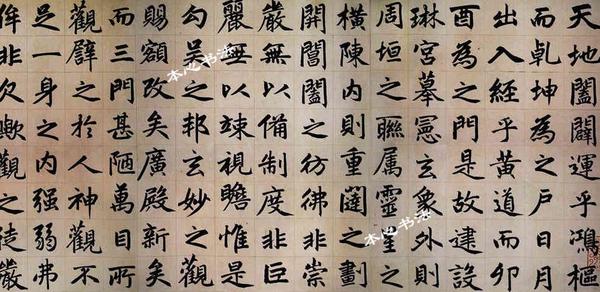 天地闔闢運乎鴻樞
而乾坤為之戶日月
出入經乎黃道而卯
酉為之門是故建設
琳宮摹憲玄象外則
周垣之聯属靈星之
橫陳內則重闥之劃
開閶闔之彷彿非崇
嚴無以備制度非巨
麗無以竦視瞻惟是
勾吳之邦玄妙之觀
賜額改矣廣殿新矣
而三門甚陋萬目所
觀譬之於人神觀不
足一身之內强弱弗
侔非欠歟觀之徒嚴
本心书法
本心书法